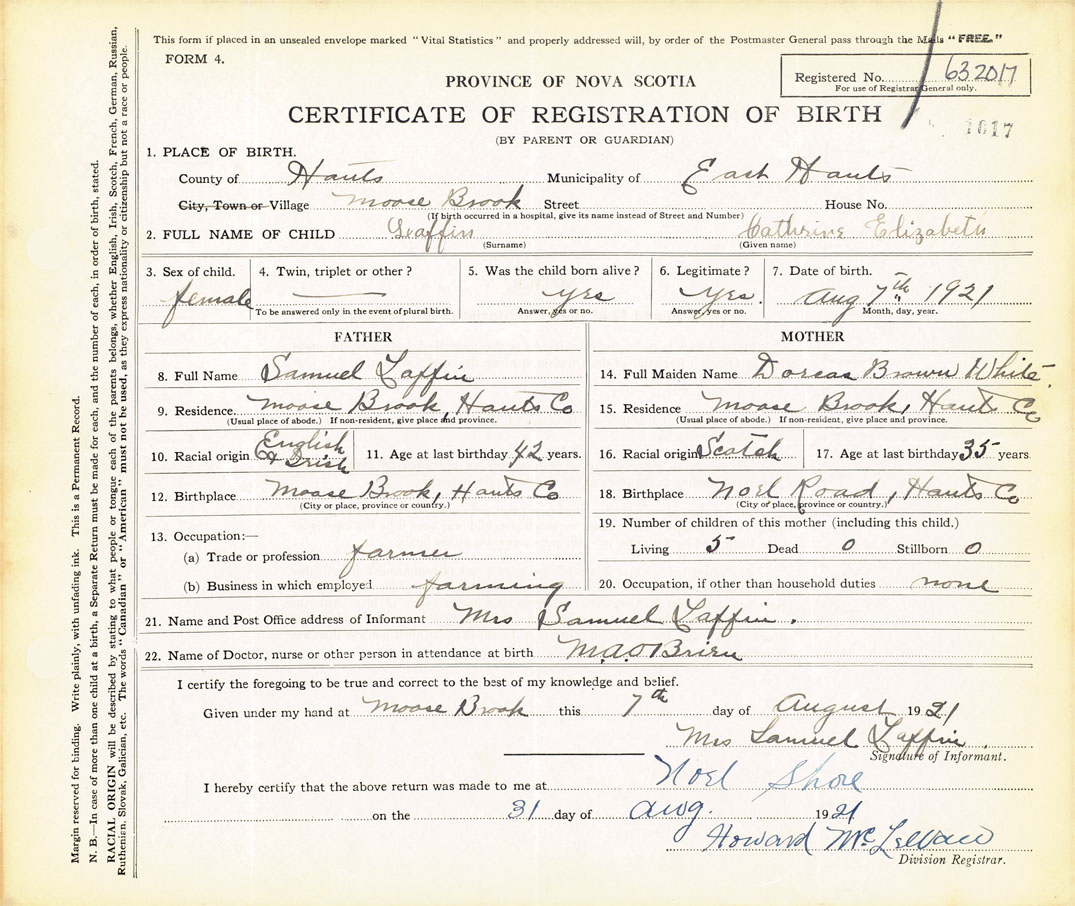 This form if placed in an unsealed envelope marked "Vital Statistics" and properly addressed will, by order of the Postmaster General pass through the Mails "FREE."
FORM 4.
Registered No. 632017
For use of Registrar General only.
PROVINCE OF NOVA SCOTIA
CERTIFICATE OF REGISTRATION OF BIRTH
1617
(BY PARENT OR GUARDIAN)
1. PLACE OF BIRTH.
County of Hants Municipality of East Hants
City, Town or Village Moose Brook Street House No.
(If birth occurred in a hospital, give its name instead of Street and Number)
2. FULL NAME OF CHILD Laffin Cathrine Elizabeth
(Surname) (Given name)
3. Sex of child. 4. Twin, triplet or other? 5. Was the child born alive? 6. Legitimate? 7. Date of birth.
female yes Yes. Aug 7th 1921
To be answered only in the event of plural birth. Answer, yes or no. Answer, yes or no. Month, day, year.
FATHER MOTHER
8. Full Name Samuel Laffin 14. Full Maiden Name Dorcas Brown White
9. Residence. Moose Brook, Hants Co 15. Residence Moose Brook, Hants Co
(Usual place of abode.) If non-resident, give place and province. (Usual place of abode.) If non-resident, give place and province.
10. Racial origin English & Irish 11. Age at last birthday 42 years. 16. Racial origin Scotch 17. Age at last birthday 35 years
12. Birthplace Moose Brook, Hants Co 18. Birthplace Noel Road, Hants Co
(City or place, province or country.) (City or place, province or country.)
13. Occupation:— 19. Number of children of this mother (including this child.)
(a) Trade or profession farmer Living 5 Dead 0 Stillborn 0
(b) Business in which employed farming 20. Occupation, if other than household duties none
21. Name and Post Office address of Informant Mrs Samuel Laffin.
22. Name of Doctor, nurse or other person in attendance at birth M.A. O'Brien
I certify the foregoing to be true and correct to the best of my knowledge and belief.
Given under my hand at Moose Brook this 7th day of August 1921
Mrs Samuel Laffin.
Signature of Informant.
I hereby certify that the above return was made to me at Noel Shore
on the 31 day of Aug. 1921
Howard
Division Registrar.
Margin reserved for binding. Write plainly, with unfading ink. This is a Permanent Record.
N. B.—In case of more than one child at a birth, a Separate Return must be made for each, and the number of each, in order of birth, stated.
RACIAL ORIGIN will be described by stating to what people or tongue each of the parents belongs, whether English, Irish, Scotch, French, German, Russian,
Ruthenian, Slovak, Galician, etc. The words "Canadian" or "American" must not be used, as they express nationality or citizenship but not a race or people.